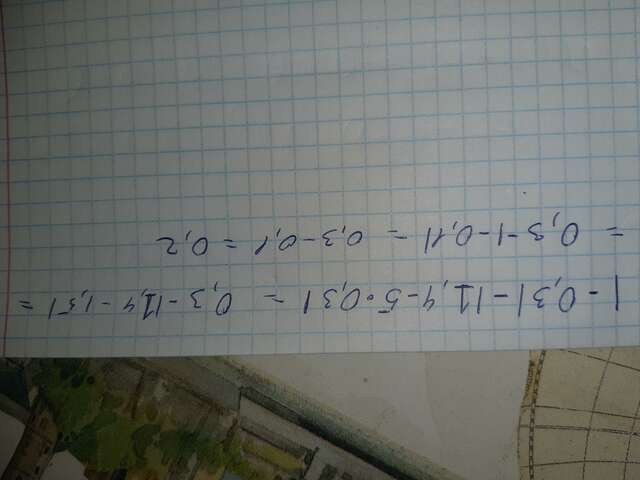 |-0,3|-|1,4-5·0,3|= 0,3-|1,4-1,5|=
= 0,3-|-0,1|= 0,3-0,1=0,2